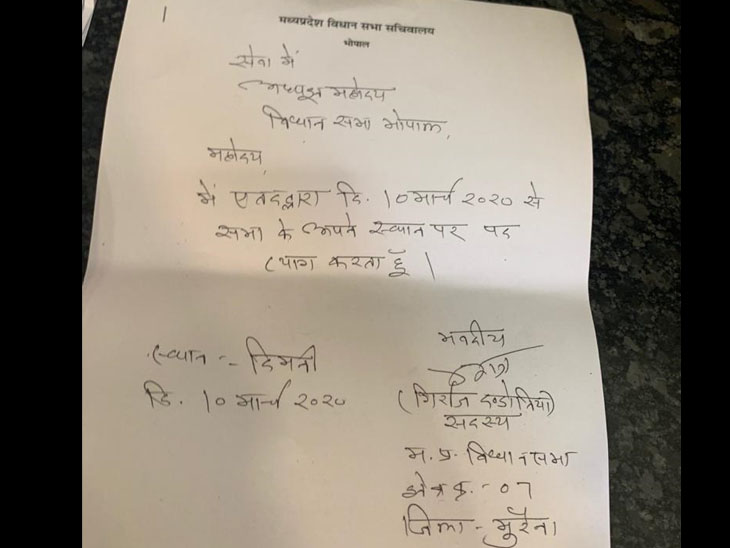 मध्यप्रदेश विधान सभा सचिवालय
भोपाल
सेवा में
अध्यक्ष महोदय
विधान सभा भोपाल,
महोदय,
में एतदद्वारा दि. 10 मार्च २०२० से
सभा के अपने स्थान पर पद
त्याग करता हूँ |
भवदीय
स्थान :- दिमनी
दि. 10 मार्च २०२०
(गिर्राज दण्डोतिया)
सदस्य
म.प्र. विधान सभा
क्षेत्र क्र. - 07
जिला - मुरैना